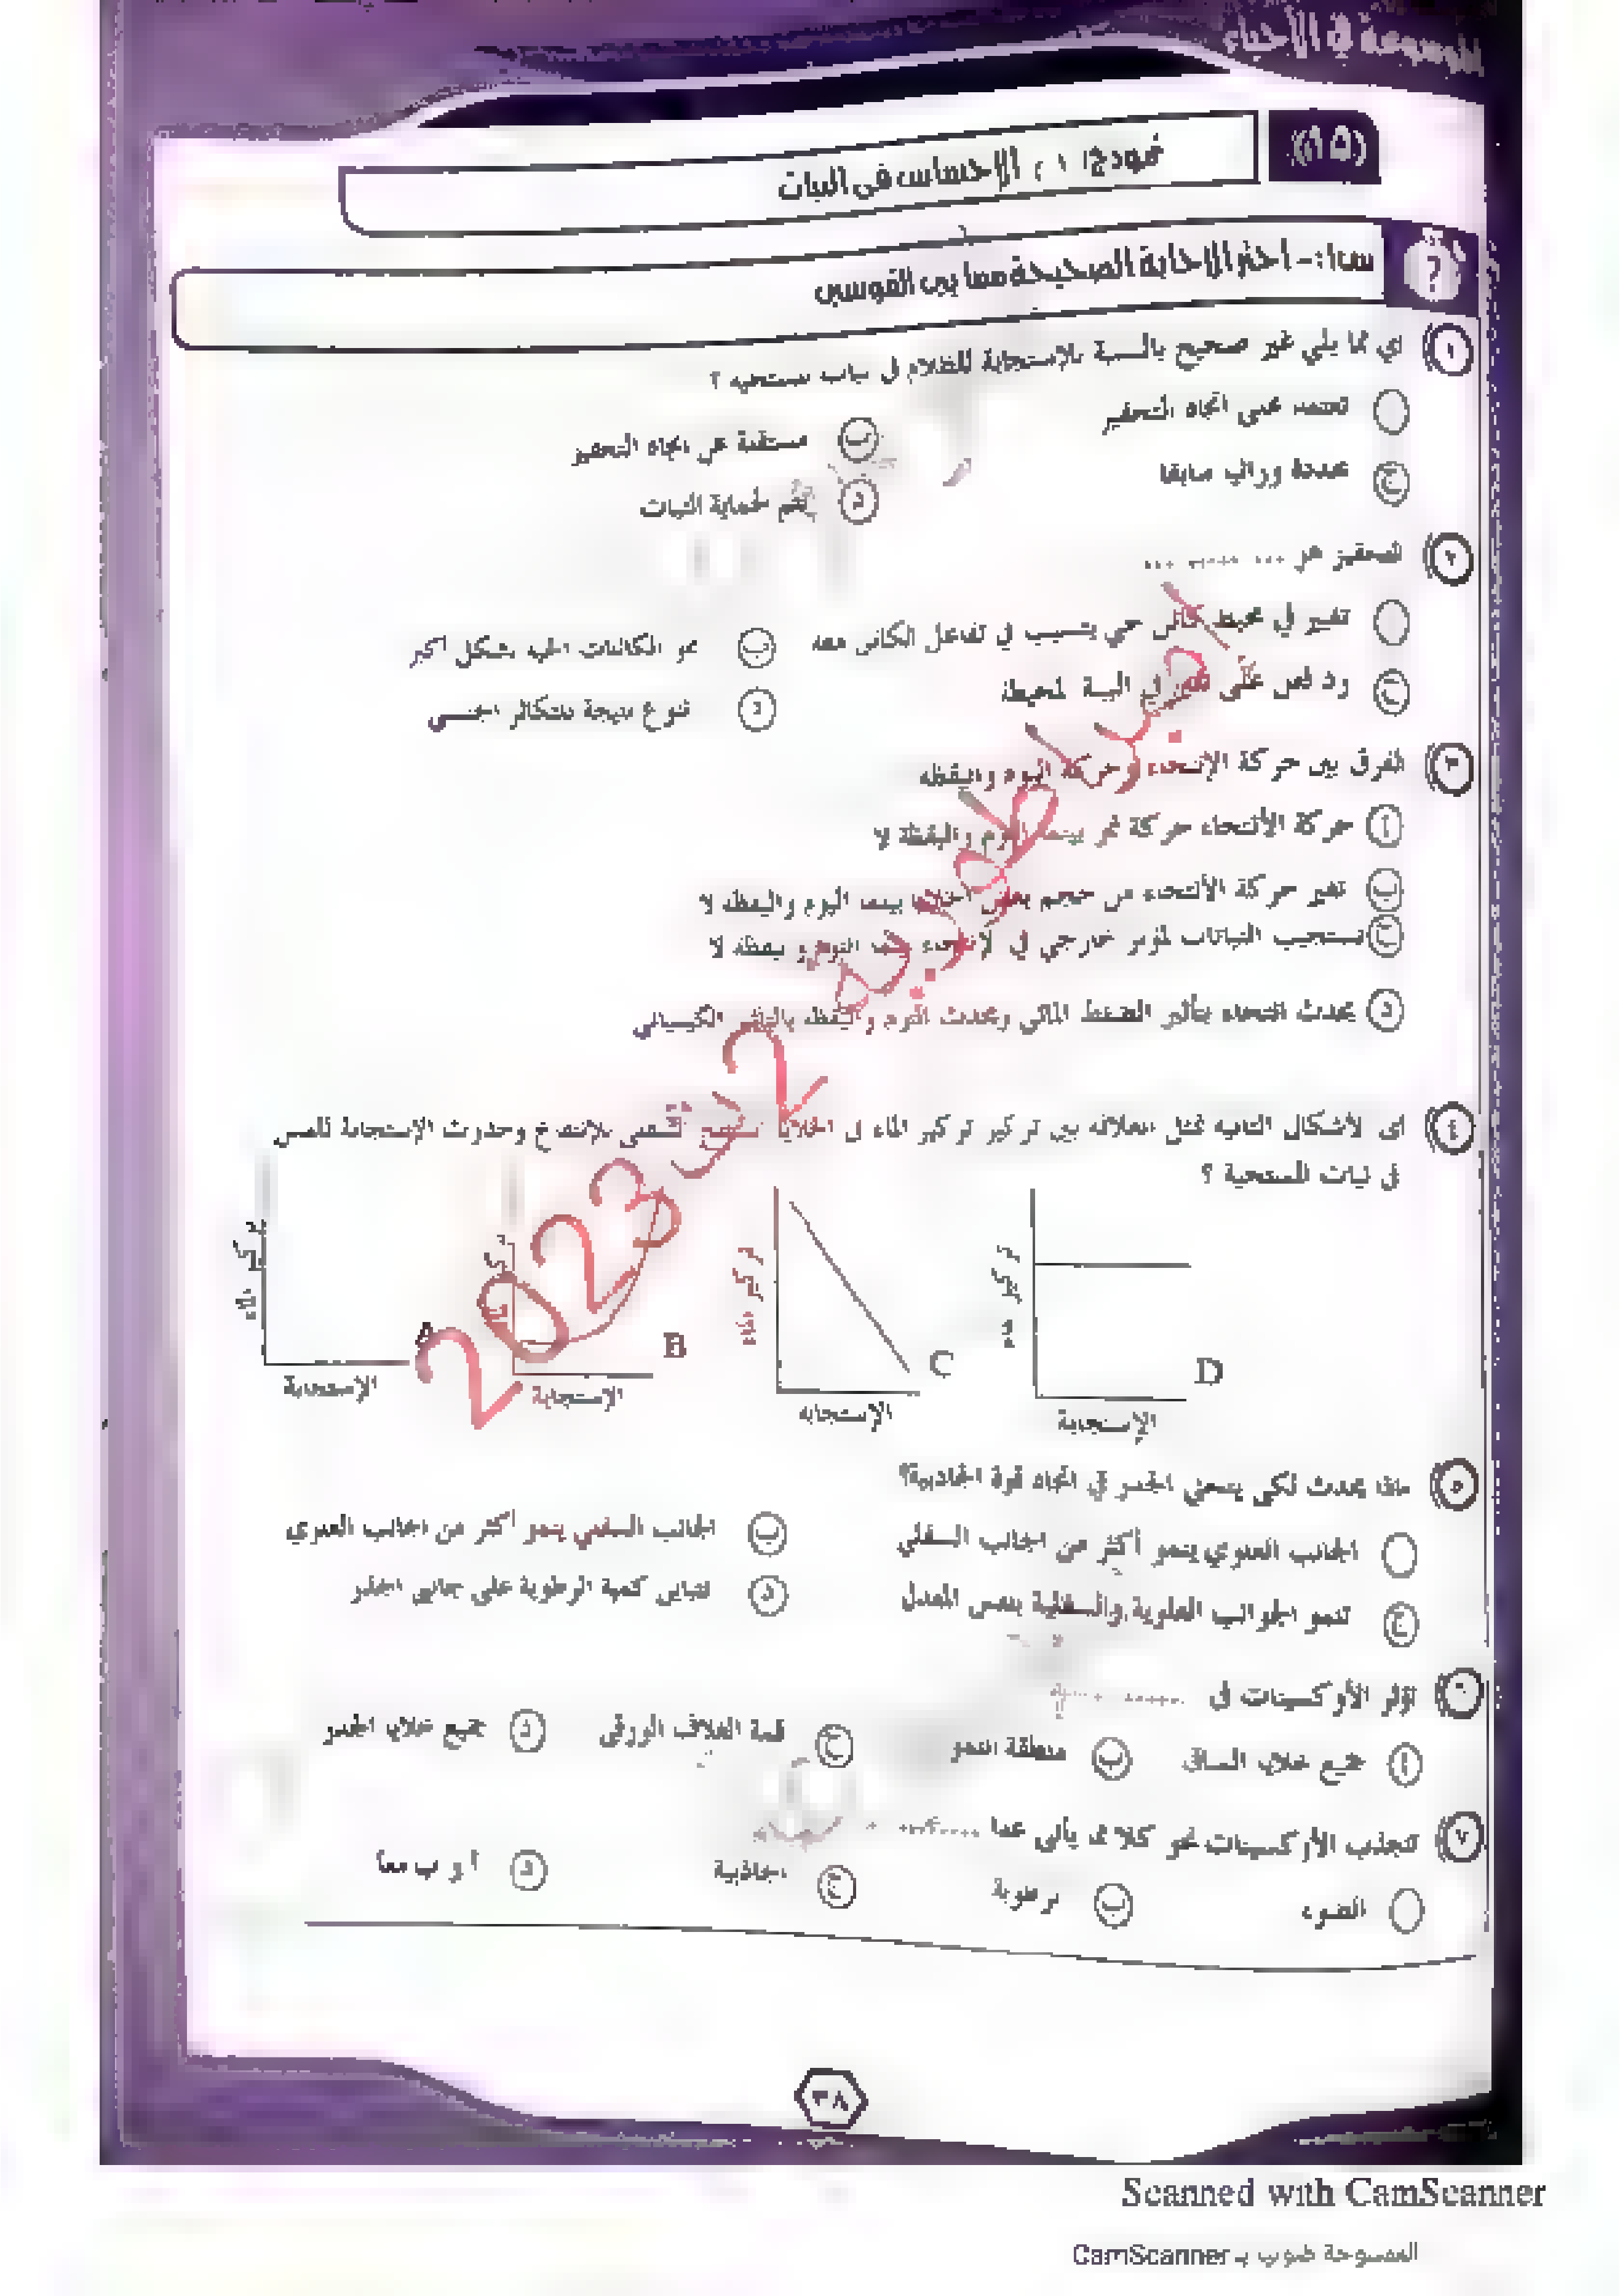 الموسوعة في الأحياء
(١٥)
نموذج ( ١ ) الإحساس في النبات
س١:- اختر الإجابة الصحيحة مما بين القوسين
١ أي مما يلي غير صحيح بالنسبة للإستجابة للظلام في نبات المستحية ؟
تعتمد على اتجاه التحفيز
ب مستقلة عن اتجاه التحفيز
ج محددة وراثيا سابقا
د تتم لحماية النبات
٢ التحفيز هو ... ...
تغيير في محيط كائن حي يتسبب في تفاعل الكائن معه
ب نمو الكائنات الحية بشكل أكبر
ج رد فعل على تغيير في البيئة المحيطة
د تنوع نتيجة للتكاثر الجنسي
٣ الفرق بين حركة الإنتحاء وحركة النوم واليقظه
أ حركة الأنتحاء حركة نمو بينما النوم واليقظة لا
ب تغير حركة الأنتحاء من حجم بعض الخلايا بينما النوم واليقظه لا
ج تستجيب النباتات لمؤثر خارجي في الإنتحاء النوم و يقظه لا
د يحدث انتحاء بتأثير الضغط المائي ويحدث النوم واليقظه بالتأثير الكيميائي
٤ اى الأشكال التالية تمثل العلاقه بين تركيز تركيز الماء فى الخلايا السفلى للإنتفاخ وحدوث الإستجابة للمس
فى نبات المستحية ؟
تركيز الماء
تركيز الماء
تركيز الماء
تركيز الماء
A
B
C
D
الإستجابة
الإستجابة
الإستجابه
الإستجابة
٥ ماذا يحدث لكى ينحني الجذر في اتجاه قوة الجاذبية؟
الجانب العلوي ينمو أكثر من الجانب السفلي
ب الجانب السفلي ينمو أكثر من الجانب العلوي
ج تنمو الجوانب العلوية والسفلية بنفس المعدل
د تتباين كمية الرطوبة على جانبي الجذر
٦ تؤثر الأوكسينات فى
أ جميع خلايا الساق
ب منطقة النمو
ج قمة الغلاف الورقى
د جميع خلايا الجذر
٧ تنجذب الأوكسينات نحو كلا مما يأتى عدا ........
الضوء
ب الرطوبة
ج الجاذبية
د أ و ب معا
٣٨
2023
Scanned with CamScanner
الممسوحة ضوئيا بـ CamScanner